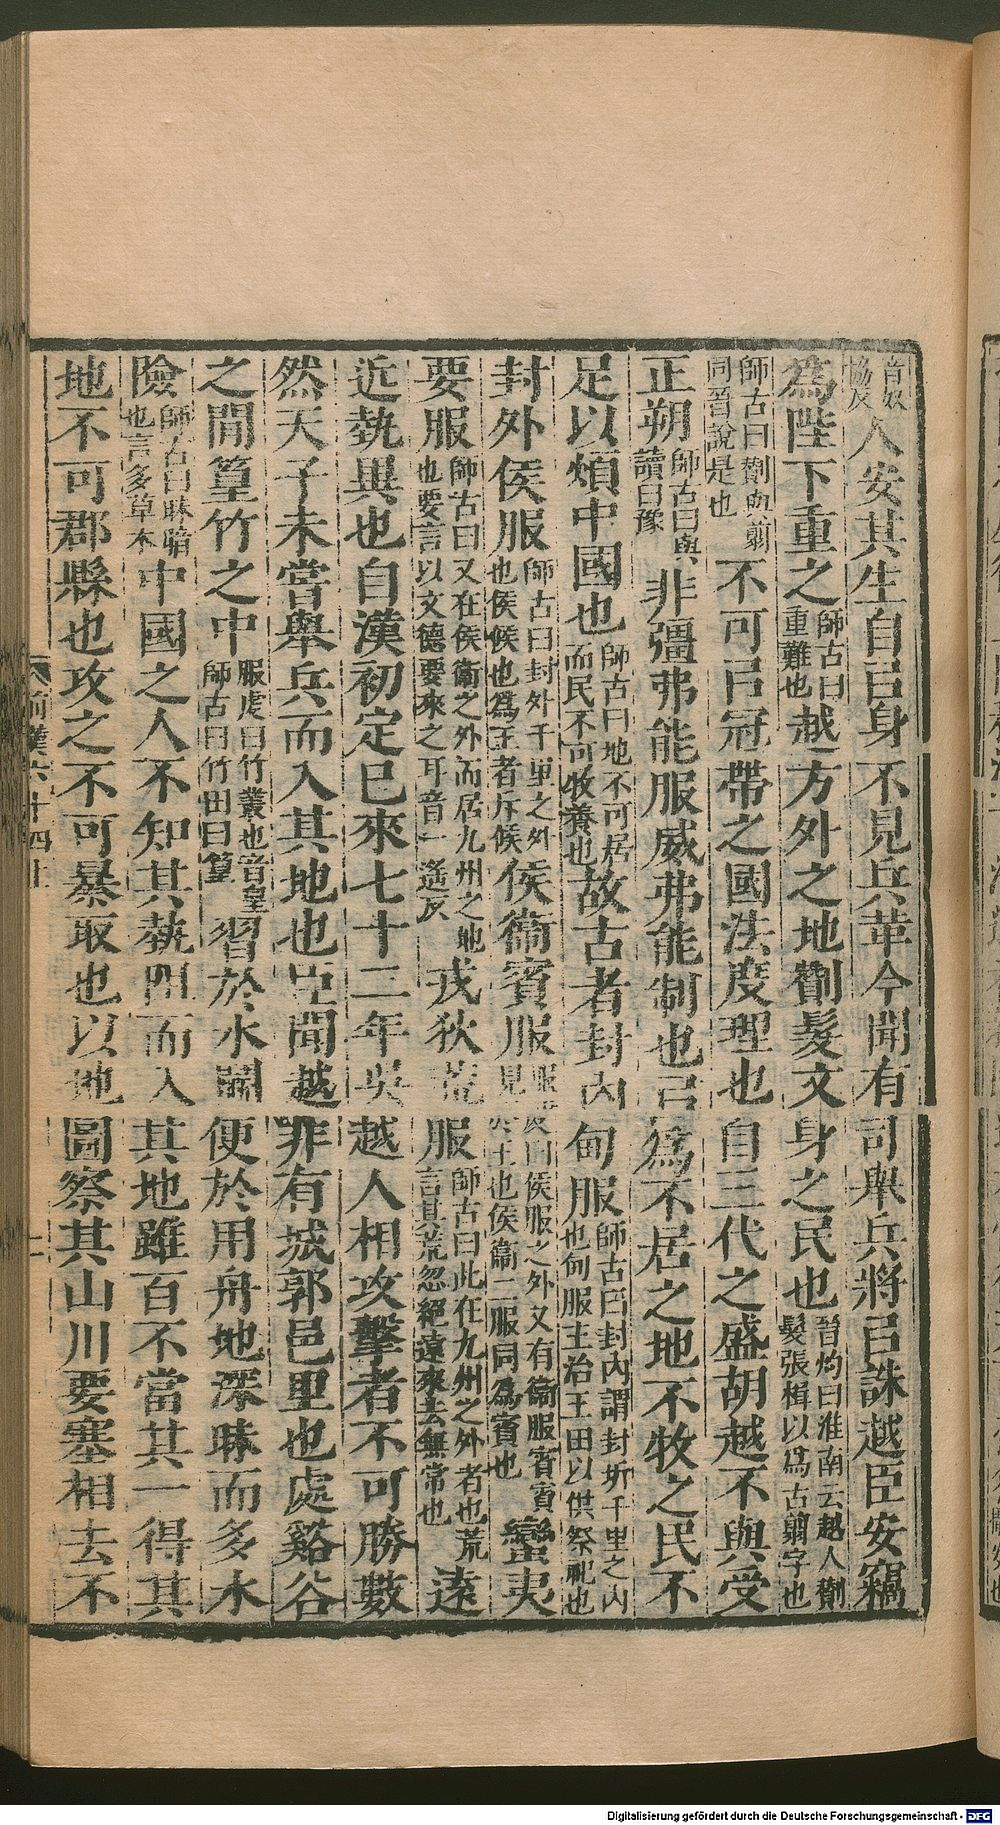 音奴協反人安其生自㠯身不見兵革今聞有司舉兵將㠯誅越臣安竊
爲陛下重之師古曰重難也越方外之地劗髮文身之民也晉灼曰淮南云越人劗髮張揖以爲古翦字也
師古曰劗與翦同晉說是也不可㠯冠帶之國法度理也自三代之盛胡越不與受
正朔師古曰與讀曰豫非彊弗能服威弗能制也㠯爲不居之地不牧之民不
足以煩中國也師古曰地不可居而民不可牧養也故古者封內甸服師古曰封內謂封圻千里之內也甸服主治王田以供祭祀也
封外侯服師古曰封外千里之外也侯候也爲王者斥候侯衞賓服侯服之外又有衞服賓賓也侯衞二服同爲賓也蠻夷
要服師古曰又在侯衞之外而居九州之地也要言以文德要來之耳音一遙反戎狄荒服師古曰此在九州之外者也荒言其荒忽絕遠來去無常也遠
近埶異也自漢初定已來七十二年吳越人相攻擊者不可勝數
然天子未嘗舉兵而入其地也臣聞越非有城郭邑里也處谿谷
之間篁竹之中服虔曰竹叢也音皇師古曰竹田曰篁習於水鬭便於用舟地深昧而多水
險師古曰昧暗也言多草木中國之人不知其埶阻而入其地雖百不當其一得其
地不可郡縣也攻之不可暴取也以地圖察其山川要塞相去不
前漢六十四上
Digitalisierung gefördert durch die Deutsche Forschungsgemeinschaft - DFG